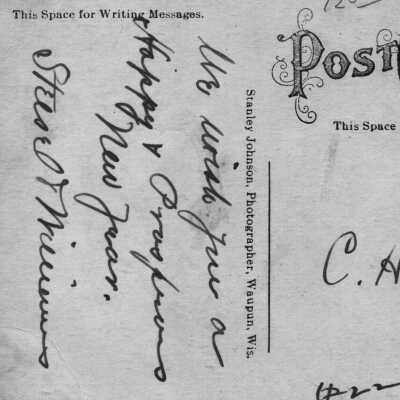 This Space for Writing Messages.
We wish you a
Happy & Prosperous
New Year.
Williams
Stanley Johnson, Photographer, Waupun, Wis.
POST
This Space
C. H